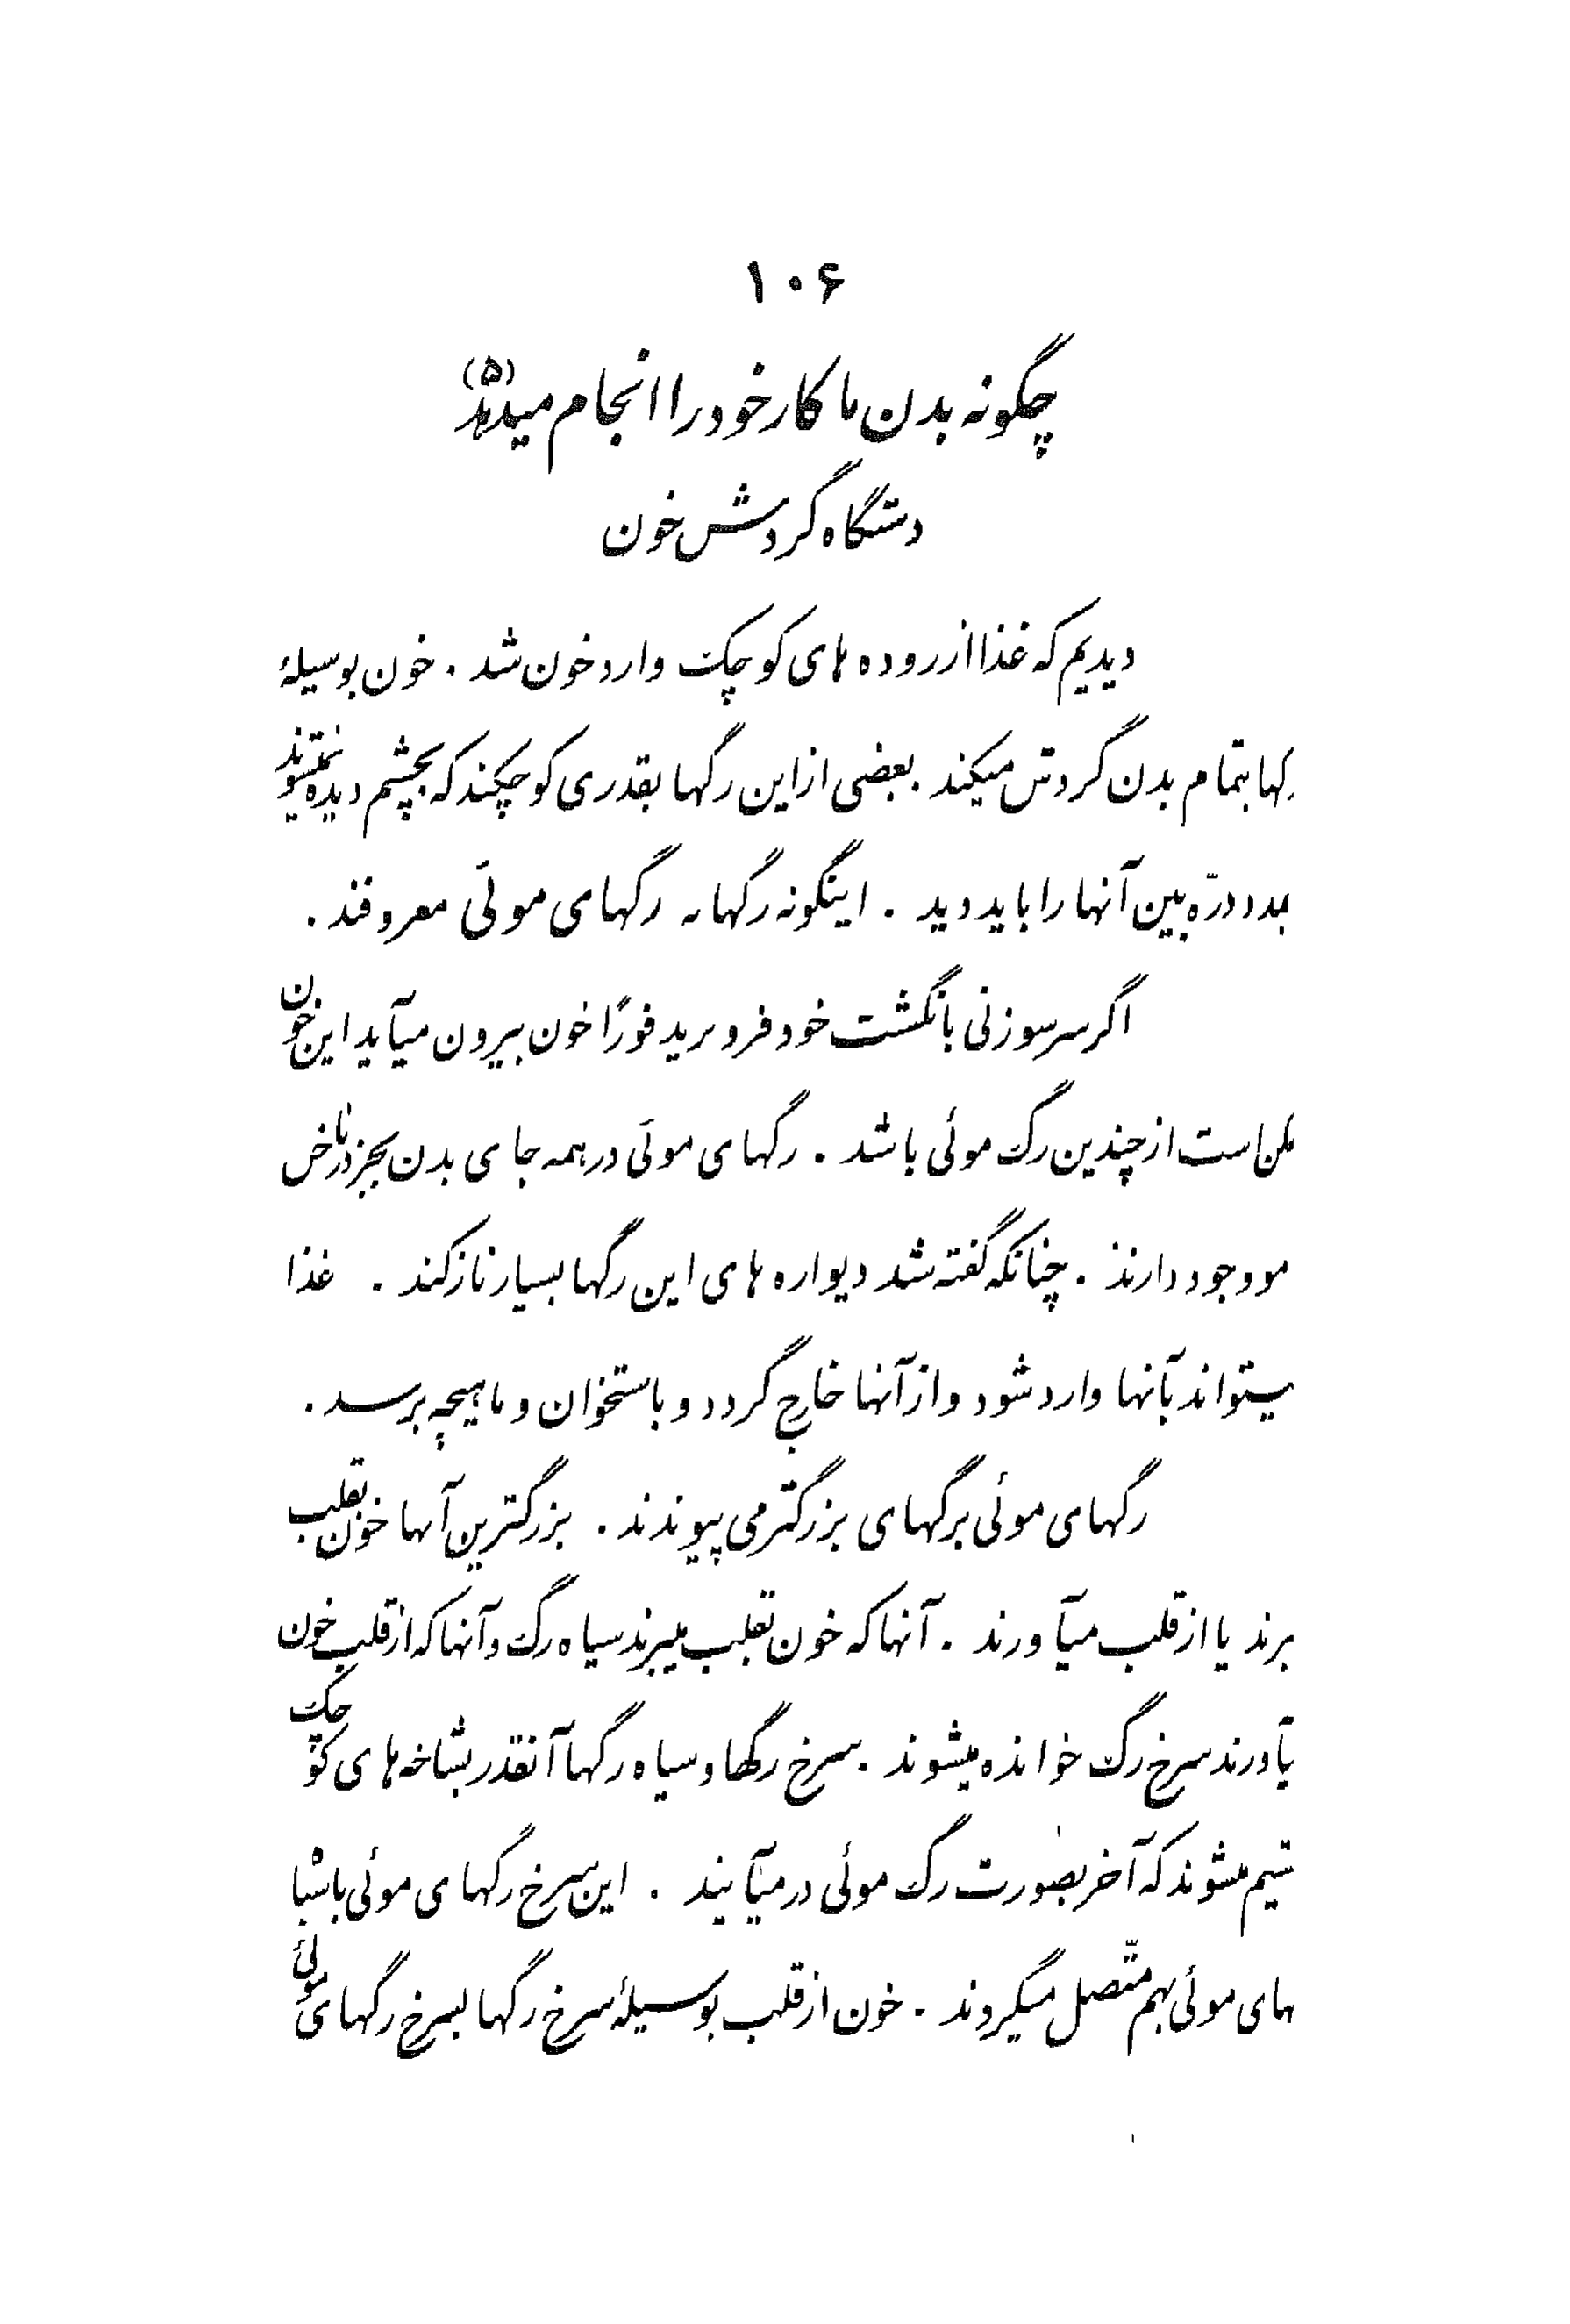 ۱۰۶
چگونه بدن ما کار خود را انجام میدهد (۵)
دستگاه گردش خون
دیدیم که غذا از روده های کوچک وارد خون شد . خون بوسیلهٔ
رگها بتمام بدن گردش میکند . بعضی از این رگها بقدری کوچکند که بچشم دیده نمیشوند
بمدد ذرّه بین آنها را باید دید . اینگونه رگها به رگهای موئی معروفند .
اگر سر سوزنی بانگشت خود فرو برید فوراً خون بیرون میآید این خون
ممکن است از چندین رگ موئی باشد . رگهای موئی در همه جای بدن بجز در ناخن
مو وجود دارند . چنانکه گفته شد دیواره های این رگها بسیار نازکند . غذا
میتواند بآنها وارد شود و از آنها خارج گردد و باستخوان و ماهیچه برسد .
رگهای موئی برگهای بزرگتر می پیوندند . بزرگترین آنها خون بقلب
برند یا از قلب میآورند . آنها که خون بقلب میبرند سیاه رگ و آنها که از قلب خون
یآورند سرخ رگ خوانده میشوند . سرخ رگها و سیاه رگها آنقدر بشاخه های کوچک
میشوند که آخر بصورت رگ موئی در میآیند . این سرخ رگهای موئی با سیا
های موئی بهم متّصل میگردند . خون از قلب بوسیلهٔ سرخ رگها بسرخ رگهای موئی